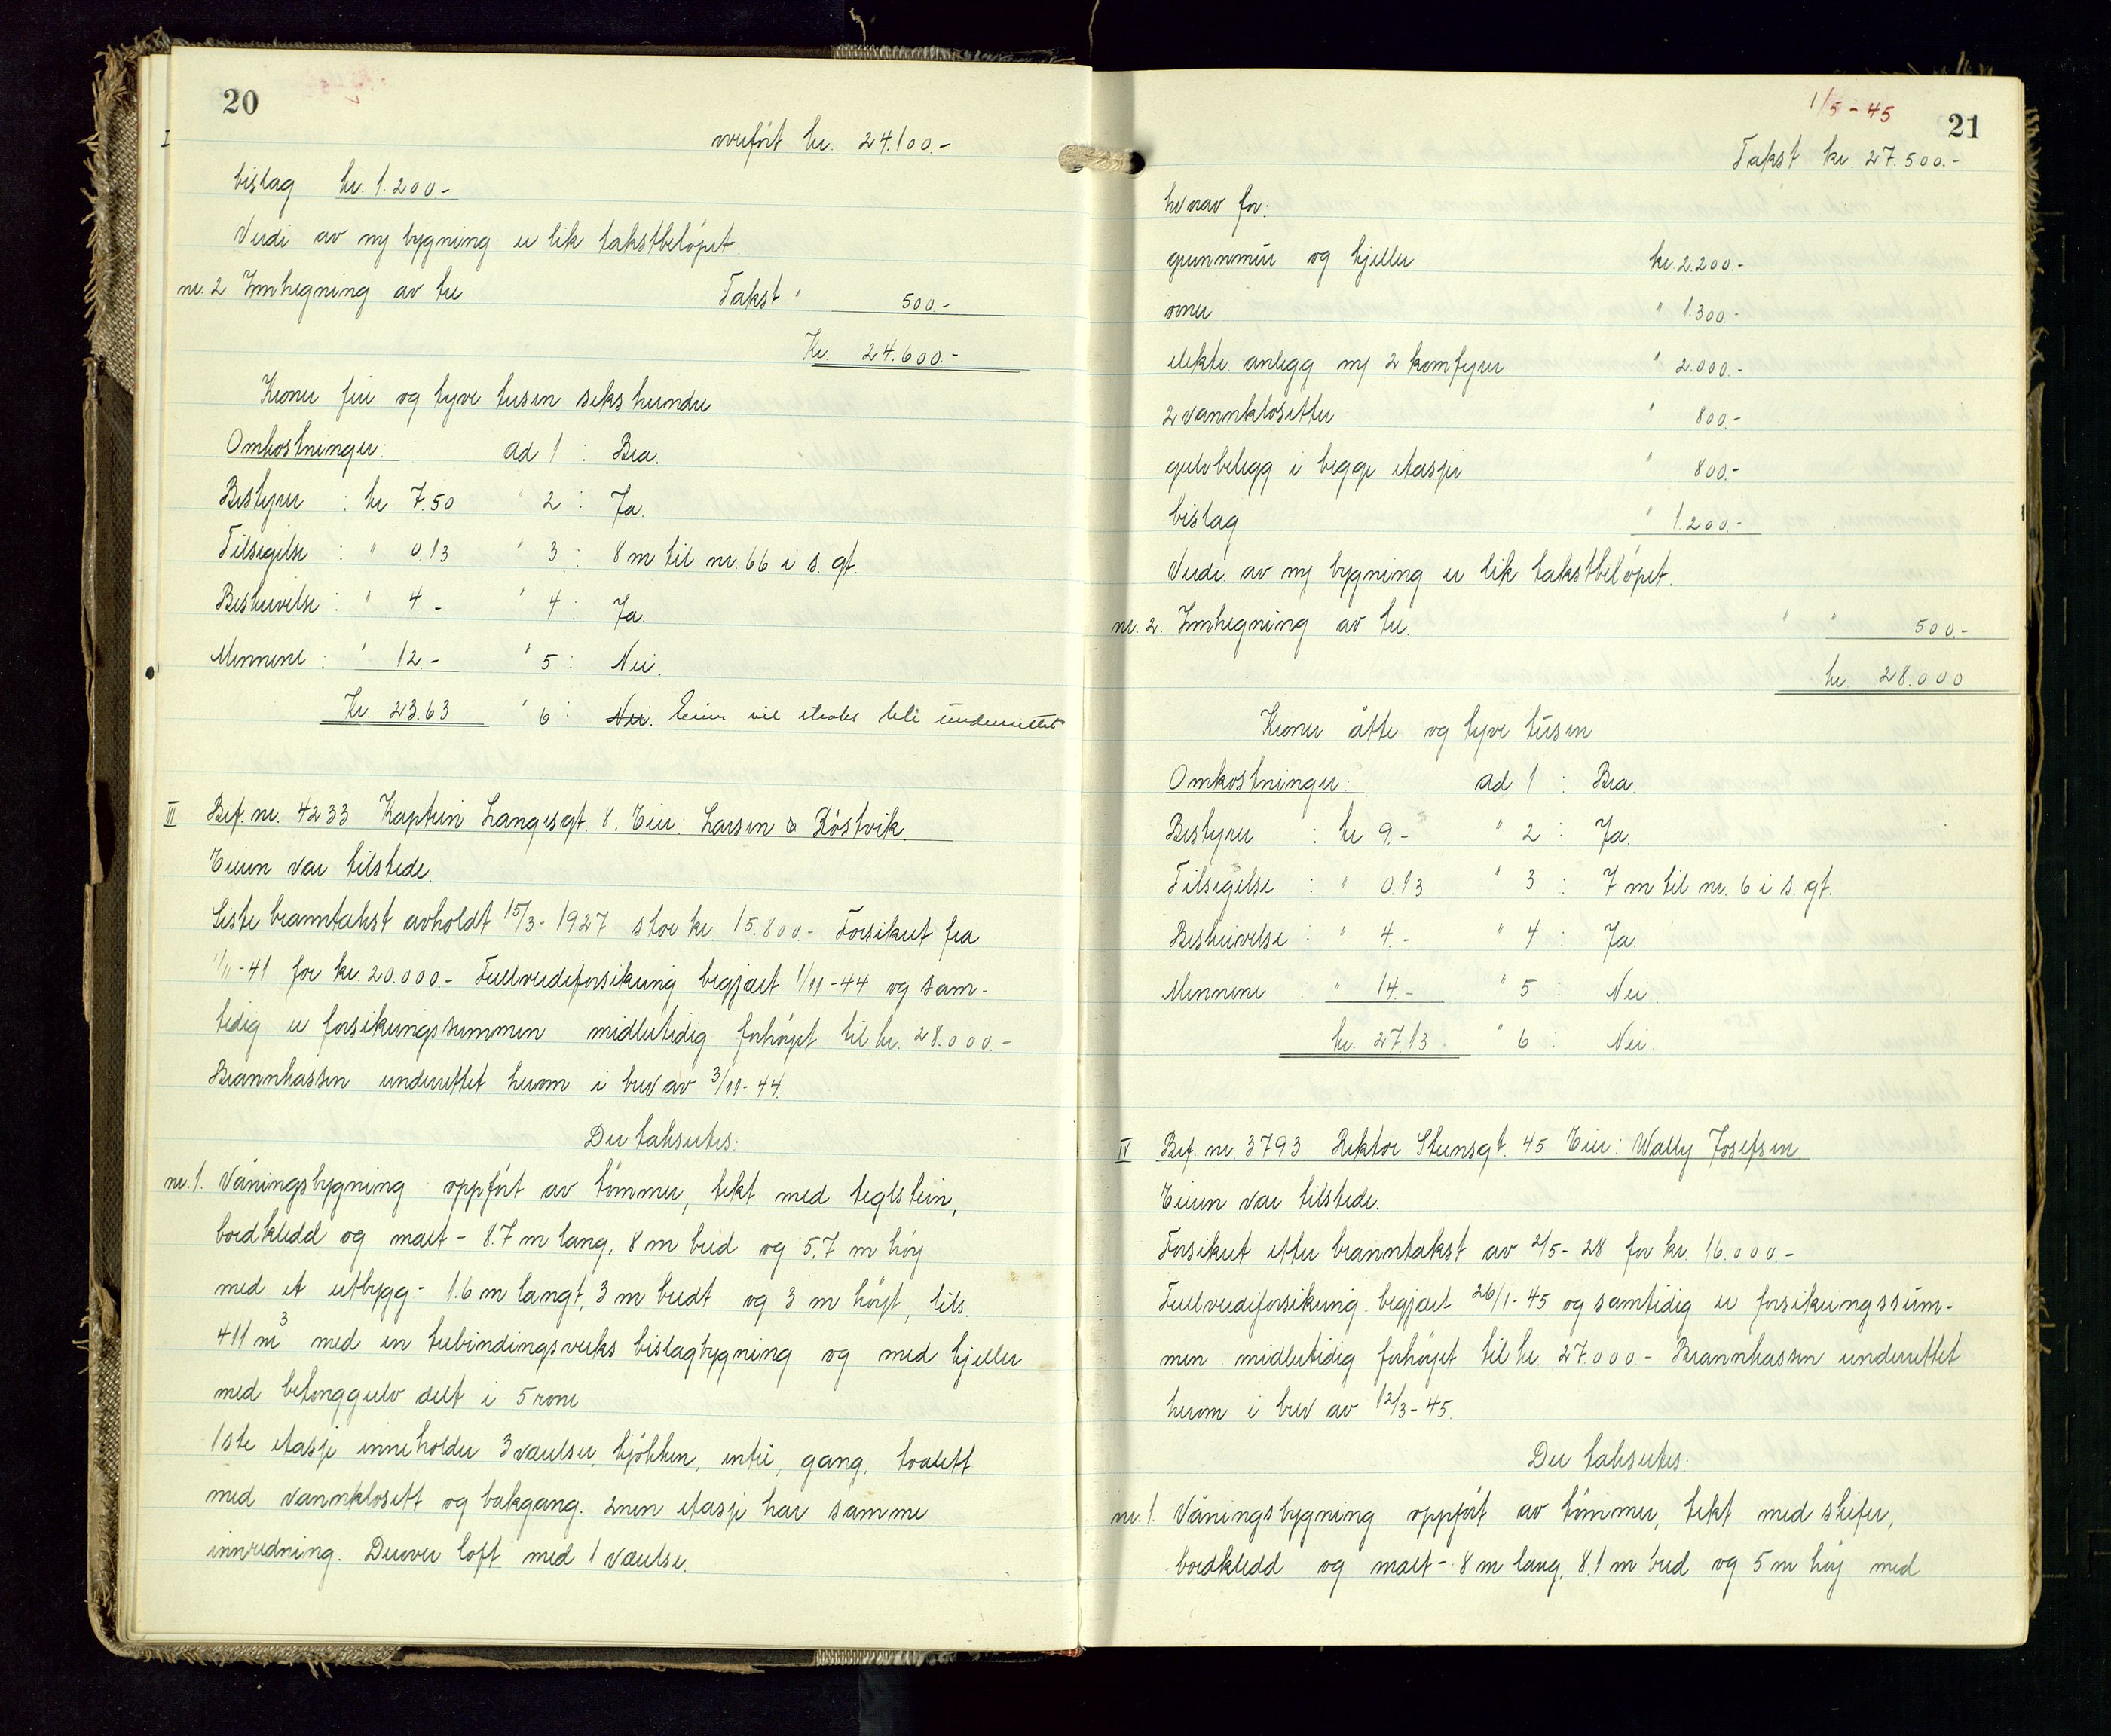 20
I
overført kr. 24.100.-
bislag kr. 1.200.-
Verdi av ny bygning er lik takstbeløpet.
nr. 2 Innhegning av tre Takst " 500.-
Kr. 24.600.-
Kroner fire og tyve tusen seks hundre.
Omkostninger: ad 1 : Bra.
Bestyrer : kr 7.50 " 2 : Ja.
Tilsigelse : " 0.13 " 3 : 8 m til nr. 66 i s. gt.
Beskrivelse : " 4.- " 4 : Ja.
Mennene : " 12.- " 5 : Nei.
Kr. 23.63 " 6 : Nei. Eieren vil straks bli underrettet
III Bef. nr. 4233 Kaptein Langesgt. 8. Eier: Larsen & Røstvik.
Eieren var tilstede.
Siste branntakst avholdt 15/3-1927 stor kr. 15.800.- Forsikret fra
1/11-41 for kr. 20.000.- Fullverdiforsikring begjært 1/11-44 og sam-
tidig er forsikringssummen midlertidig forhøyet til kr. 28.000.-
Brannkassen underrettet herom i brev av 3/11-44.
Der takseres:
nr. 1. Våningsbygning oppført av tømmer, tekt med teglstein,
bordkledd og malt - 8.7 m lang, 8 m bred og 5,7 m høy
med et utbygg - 1.6 m langt, 3 m bredt og 3 m høyt, tils.
411 m3 med en trebindingsverks bislagbygning og med kjeller
med betonggulv delt i 5 rom
1ste etasje inneholder 3 værelser, kjøkken, entré, gang, toalett
med vannklosett og bakgang. 2nen etasje har samme
innredning. Derover loft med 1 værelse.
1/5-45
21
Takst kr. 27.500.-
hvorav for:
grunnmur og kjeller kr. 2.200.-
ovner " 1.300.-
elektr. anlegg m/ 2 komfyrer " 2.000.-
2 vannklosetter " 800.-
gulvbelegg i begge etasjer " 800.-
bislag " 1.200.-
Verdi av ny bygning er lik takstbeløpet.
nr. 2. Innhegning av tre. " " 500.-
kr. 28.000
Kroner åtte og tyve tusen
Omkostninger: ad 1 : Bra
Bestyrer : kr 9.- " 2 : Ja.
Tilsigelse : " 0.13 " 3 : 7 m til nr. 6 i s. gt.
Beskrivelse : " 4.- " 4 : Ja.
Mennene : " 14.- " 5 : Nei.
kr. 27.13 " 6 : Nei.
IV Bef. nr. 3793 Rektor Steensgt. 45 Eier: Wally Josefsen
Eieren var tilstede.
Forsikret etter branntakst av 2/5-28 for kr. 16.000.-
Fullverdiforsikring begjært 26/1-45 og samtidig er forsikringssum-
men midlertidig forhøyet til kr. 27.000.- Brannkassen underrettet
herom i brev av 12/3-45.
Der takseres:
nr. 1. Våningsbygning oppført av tømmer, tekt med skifer,
bordkledd og malt - 8 m lang, 8.1 m bred og 5 m høy med